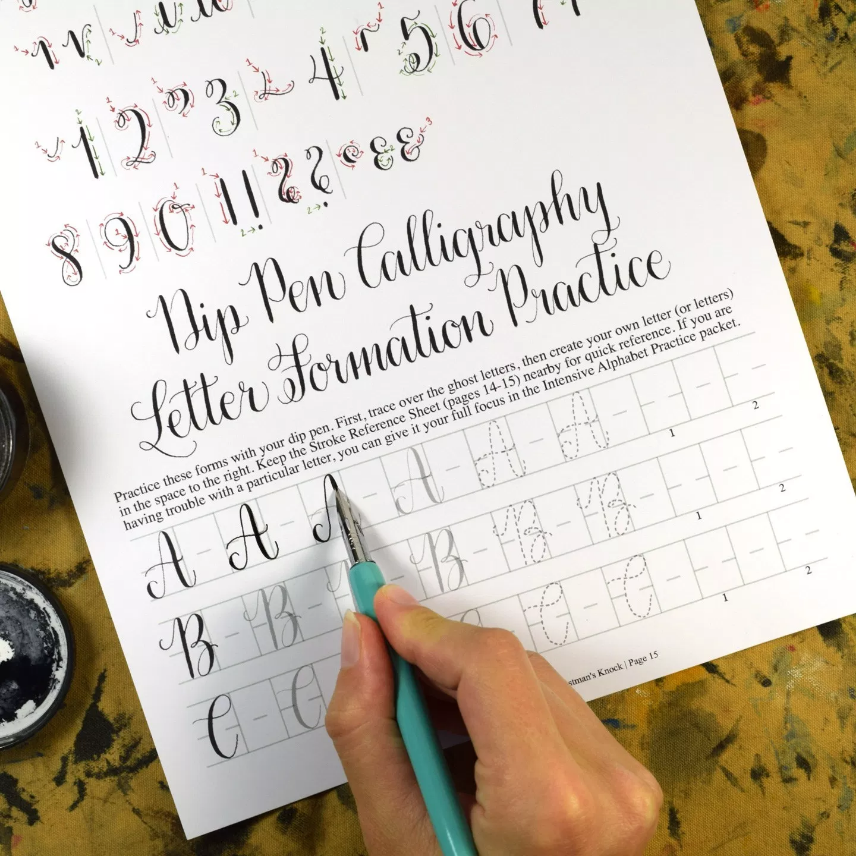 1 2 3 4 5 6
8 9 0 ! ? &
Dip Pen Calligraphy
Letter Formation Practice
Practice these forms with your dip pen. First, trace over the ghost letters, then create your own letter (or letters)
in the space to the right. Keep the Stroke Reference Sheet (pages 14-15) nearby for quick reference. If you are
having trouble with a particular letter, you can give it your full focus in the Intensive Alphabet Practice packet.
A A A A A A 1 2
B B B B B 1 2
C C C C 1 2
Knock | Page 15